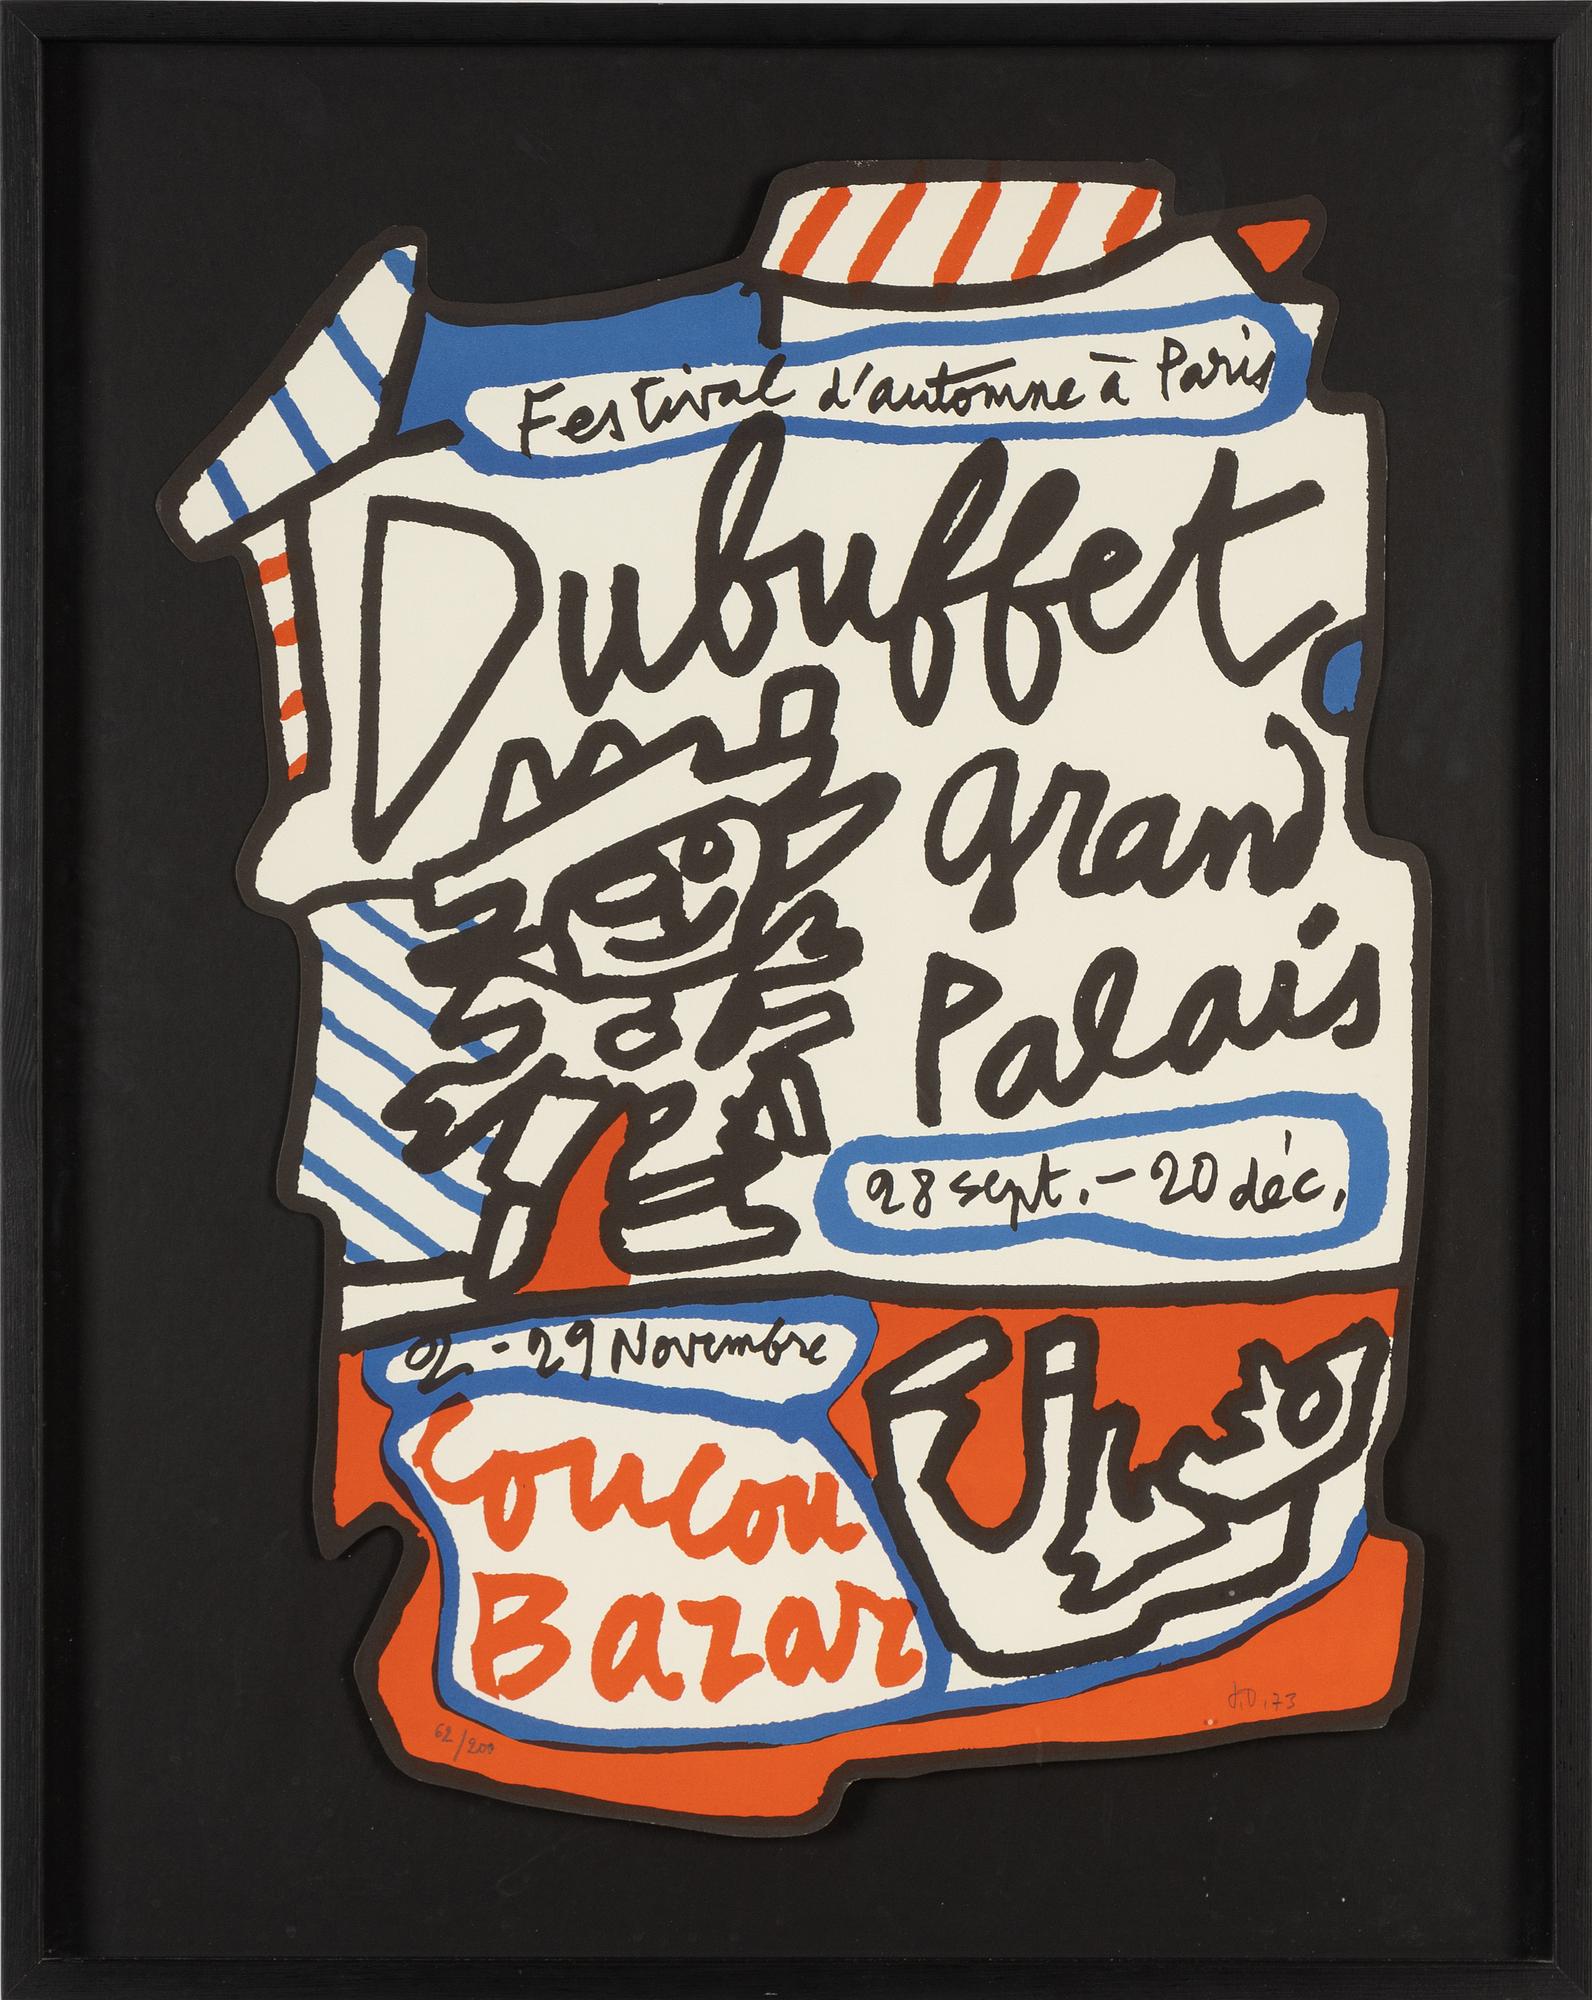 Festival d'automne à Paris
Dubuffet
Grand
Palais
28 sept. - 20 déc.
2 - 29 Novembre
Coucou
Bazar
62/200
J.D. 73